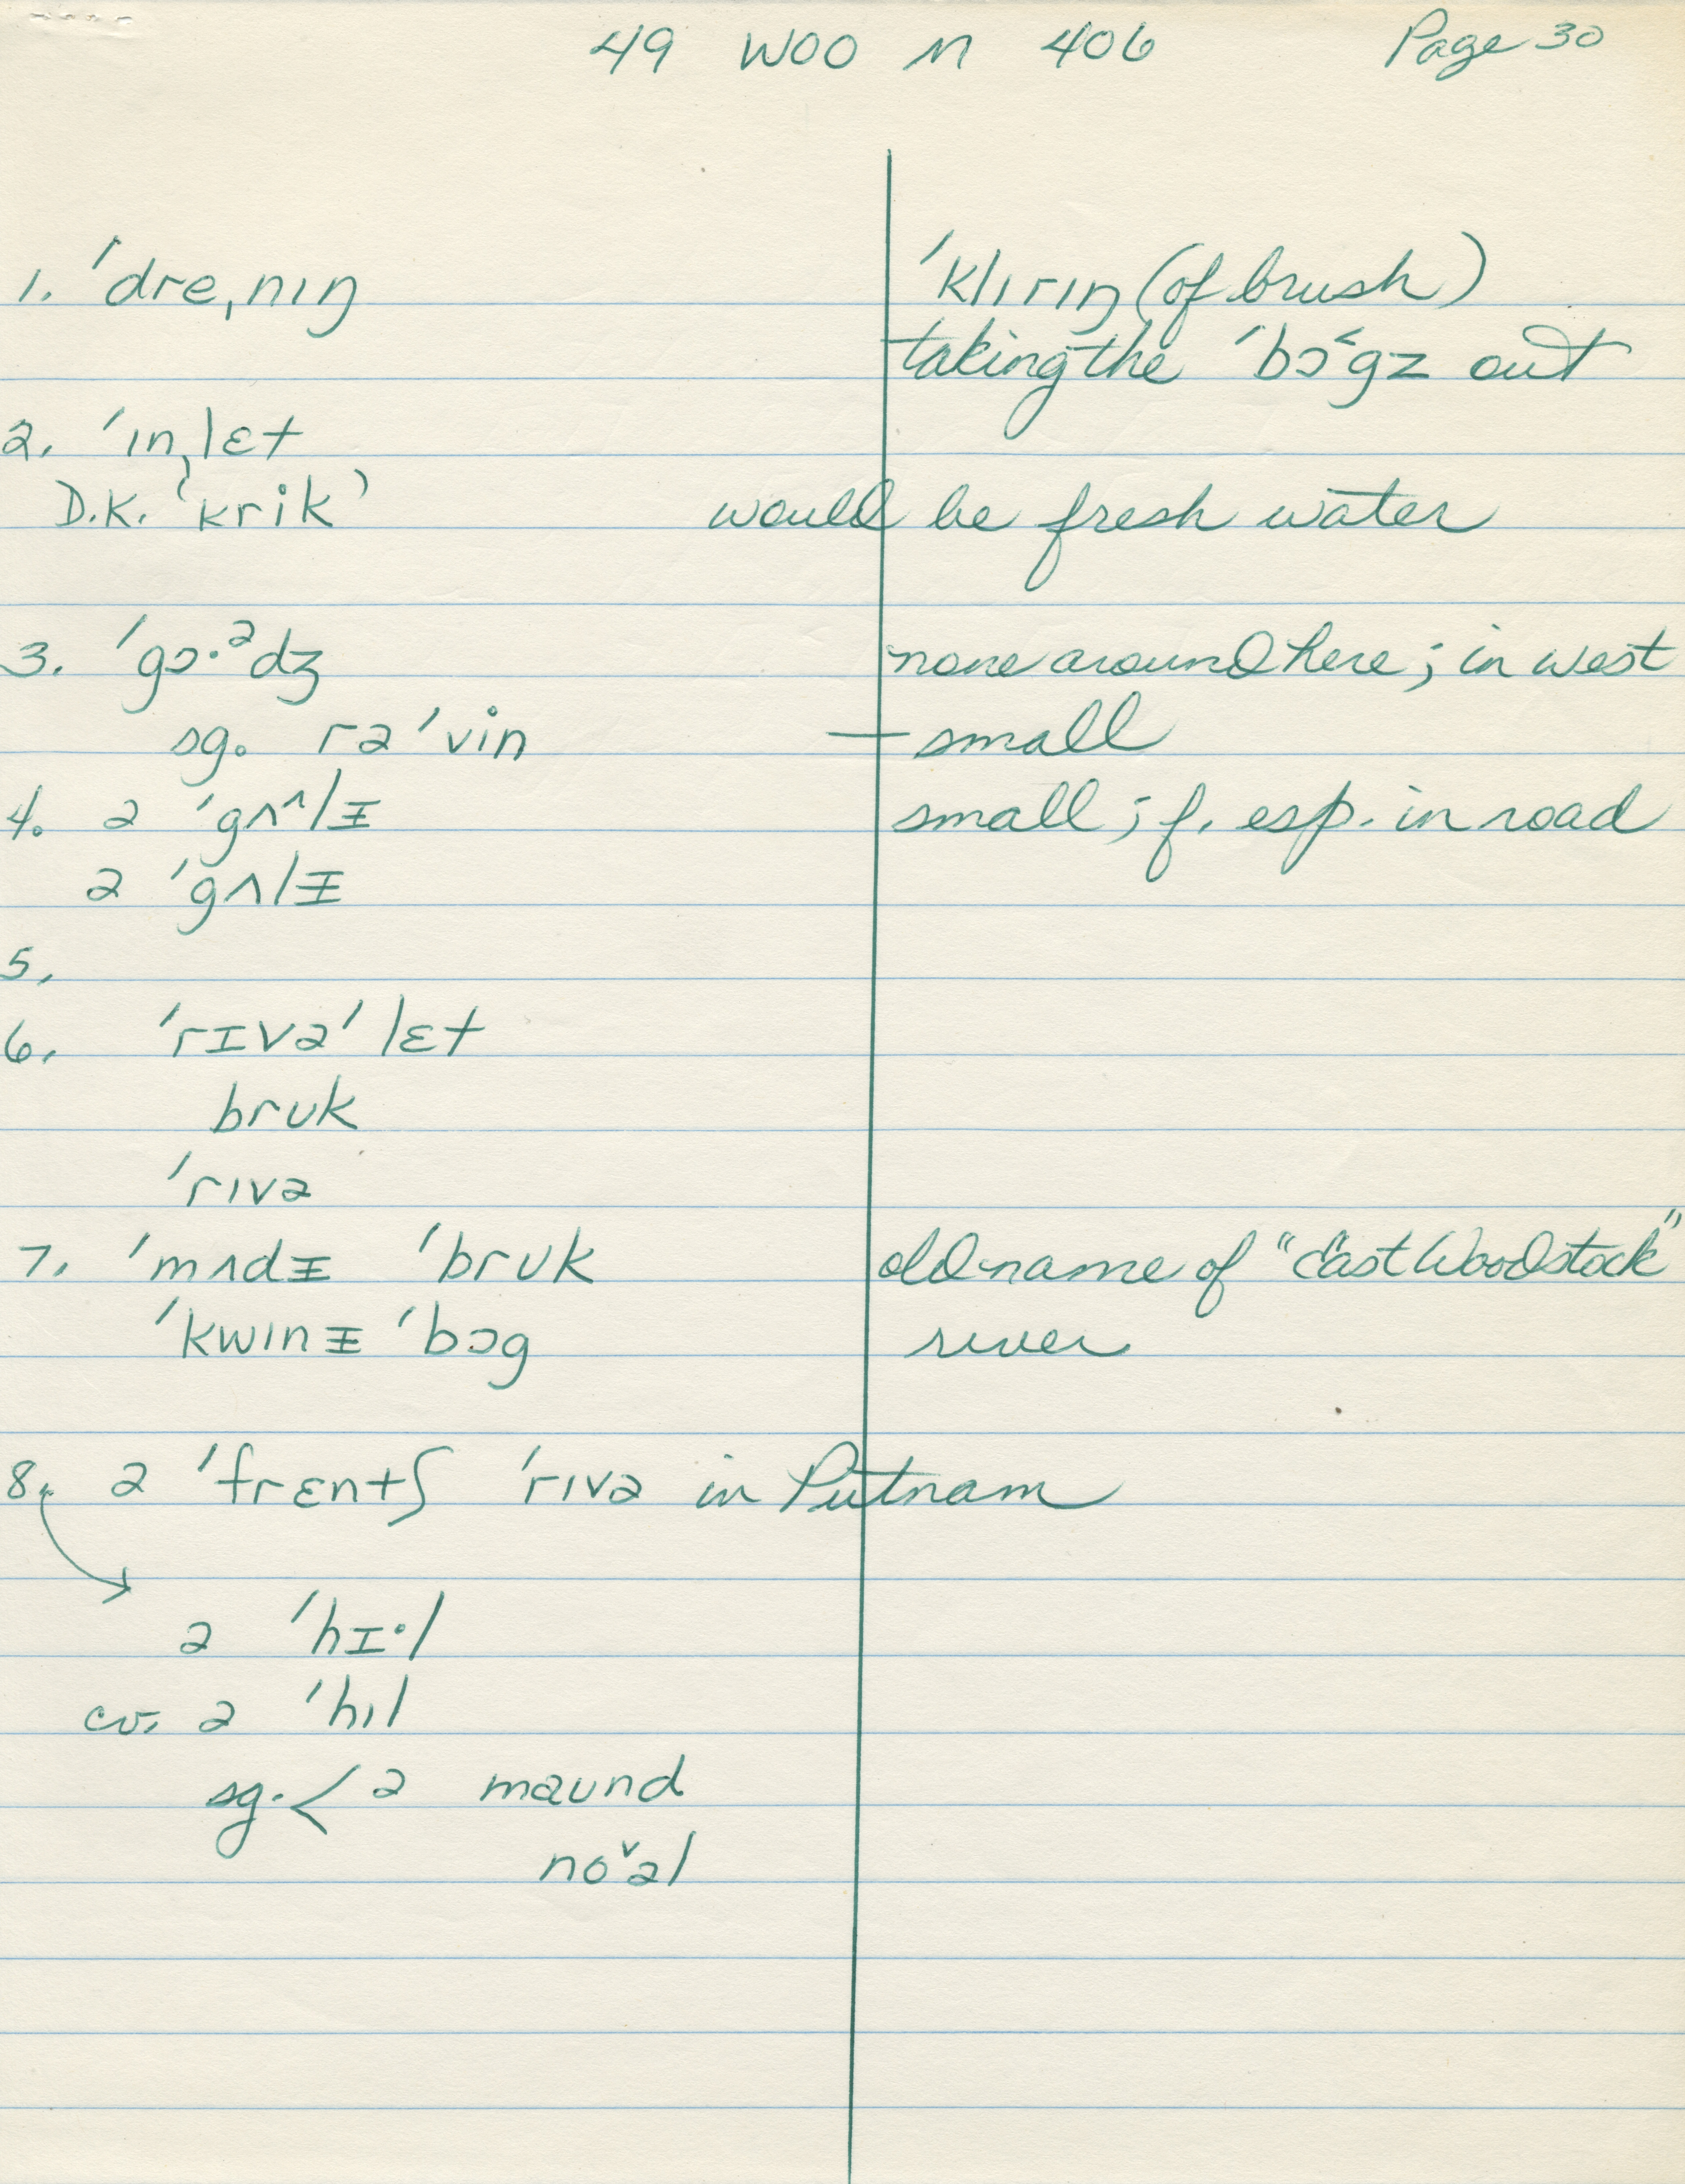 49 WOO M 406 Page 30
1. ˈdreˌnɪŋ ˈklɪrɪŋ (of brush)
taking the ˈbɔ˂gz out
2. ˈɪnˌlɛt
D.K. ‘krik’ would be fresh water
3. ˈgɔ·ᵊdʒ none around here; in west
sg. rəˈvin — small
4. ə ˈgʌ^lᵻ small; f. esp. in road
ə ˈgʌlᵻ
5.
6. ˈrɪvəˈlɛt
brʊk
ˈrɪvə
7. ˈmʌdᵻ ˈbrʊk old name of "East Woodstock"
ˈkwɪnᵻ ˈbɔg river
8. ə ˈfrɛntʃ ˈrɪvə in Putnam
ə ˈhɪ·l
cv. ə ˈhɪl
sg. < ə maʊnd
noˇəl